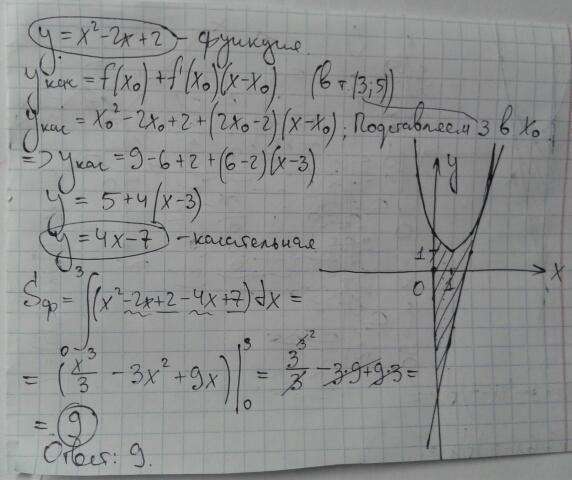 y = x² - 2x + 2 - функция.
yкас = f(x₀) + f'(x₀)(x-x₀). (в т.(3;5))
yкас = x₀² - 2x₀ + 2 + (2x₀-2)(x-x₀); Подставляем 3 в x₀.
=> yкас = 9 - 6 + 2 + (6-2)(x-3)
y = 5 + 4(x-3)
y = 4x - 7 - касательная
Sф = ∫₀³ (x² - 2x + 2 - 4x + 7) dx =
= (x³/3 - 3x² + 9x) |₀³ = 3³/3 - 3·9 + 9·3 =
= 9
Ответ: 9.
y
x
1
0
1